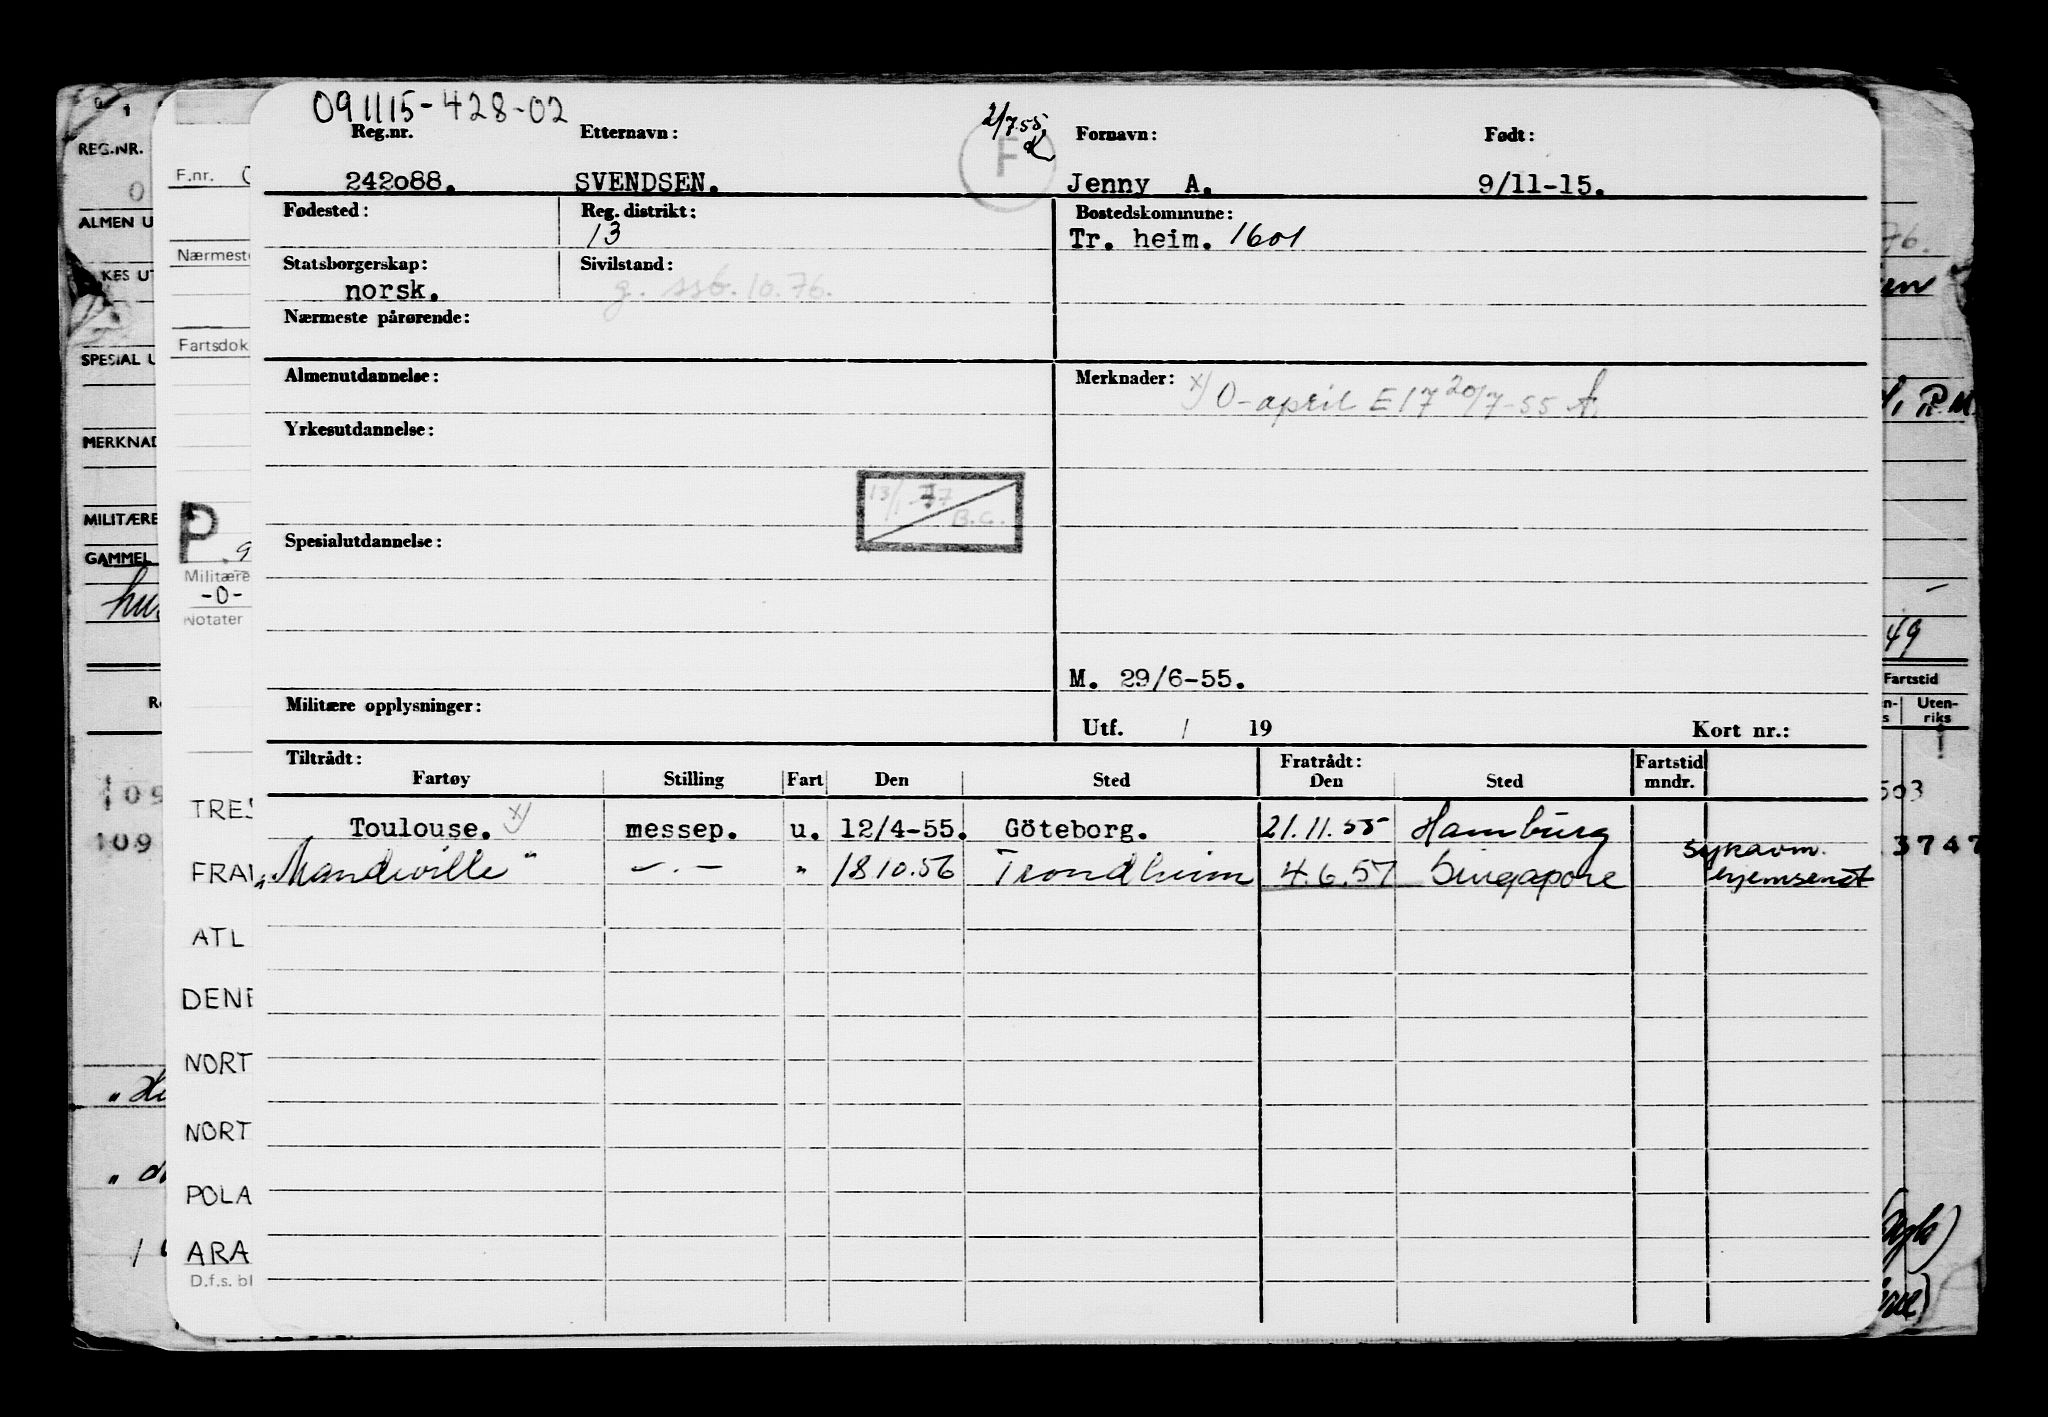 091115-428-02
2/7.55.
Reg.nr. Etternavn: F Fornavn: Født:
242o88. SVENDSEN. Jenny A. 9/11-15.
Fødested: Reg. distrikt: Bostedskommune:
13 Tr. heim. 1601
Statsborgerskap: Sivilstand:
norsk. g. ssb. 10.76.
Nærmeste pårørende:
Almenutdannelse: Merknader: x) O-april E17 20/7-55
Yrkesutdannelse:
13/1-77 B.G.
Spesialutdannelse:
M. 29/6-55.
Militære opplysninger: Utf. / 19 Kort nr.:
Tiltrådt: Fratrådt: Fartstid
Fartøy Stilling Fart Den Sted Den Sted mndr.
Toulouse. x) messep. u. 12/4-55. Göteborg. 21.11.55 Hamburg
"Mandeville" -.- " 18.10.56 Trondheim 4.6.57 Singapore sykavm. hjemsendt
REG.NR.
0
ALMEN U
KES UT
SPESIAL U
MERKNAD
MILITÆRE
GAMMEL
F.nr. 0
Nærmeste
Fartsdok
P
.9
Militære
-0-
Notater
TRES
FRAN
ATL
DENE
NORT
NORT
POLA
ARA
D.f.s. bl
109
109
76.
49
Fartstid
Uten-
riks
503
3747